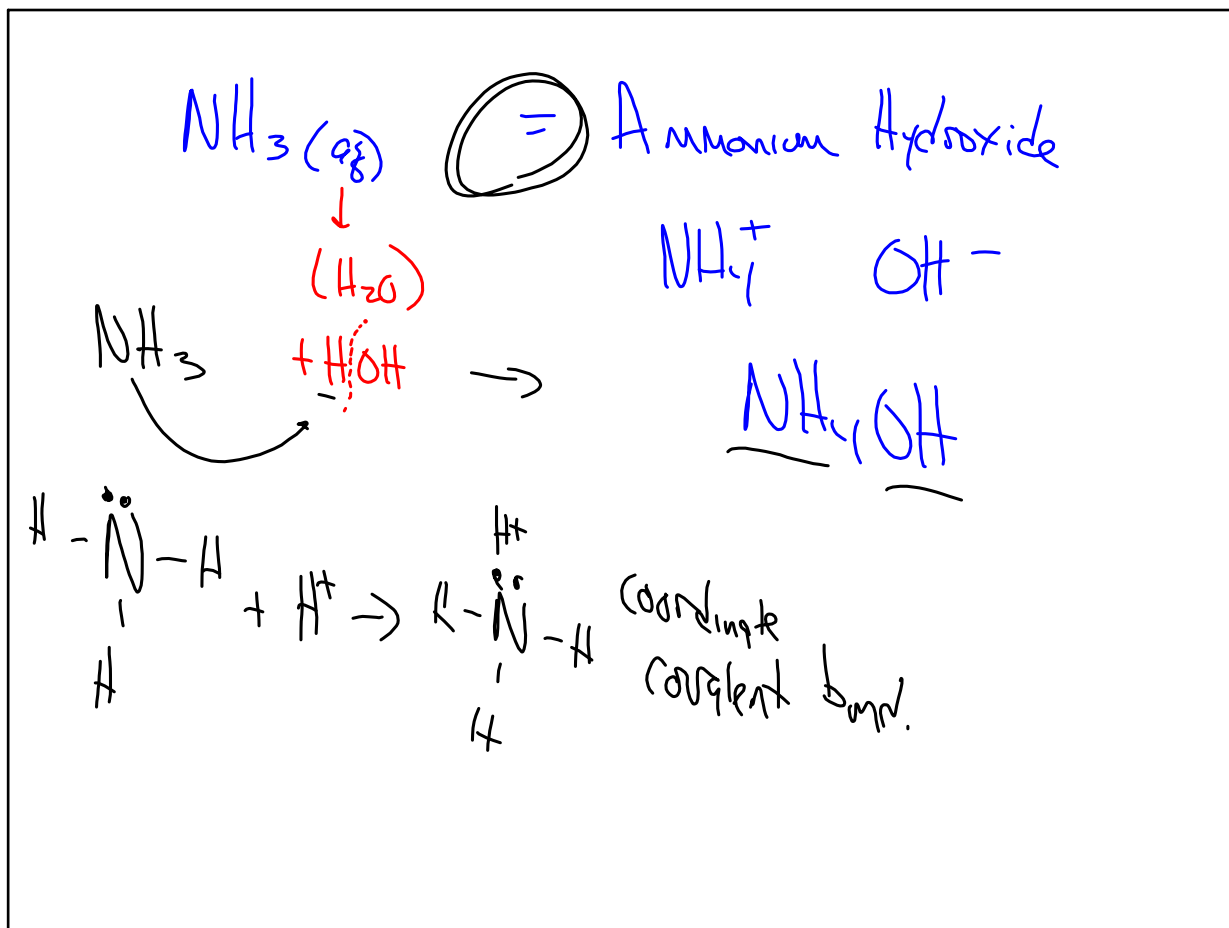 NH₃(aq) = Ammonium Hydroxide
(H₂O)
NH₄⁺ OH⁻
NH₃ + HOH → NH₄OH
H - N̈ - H
H
+ H⁺ →
H⁺
H - N̈ - H
H
coordinate
covalent bond.